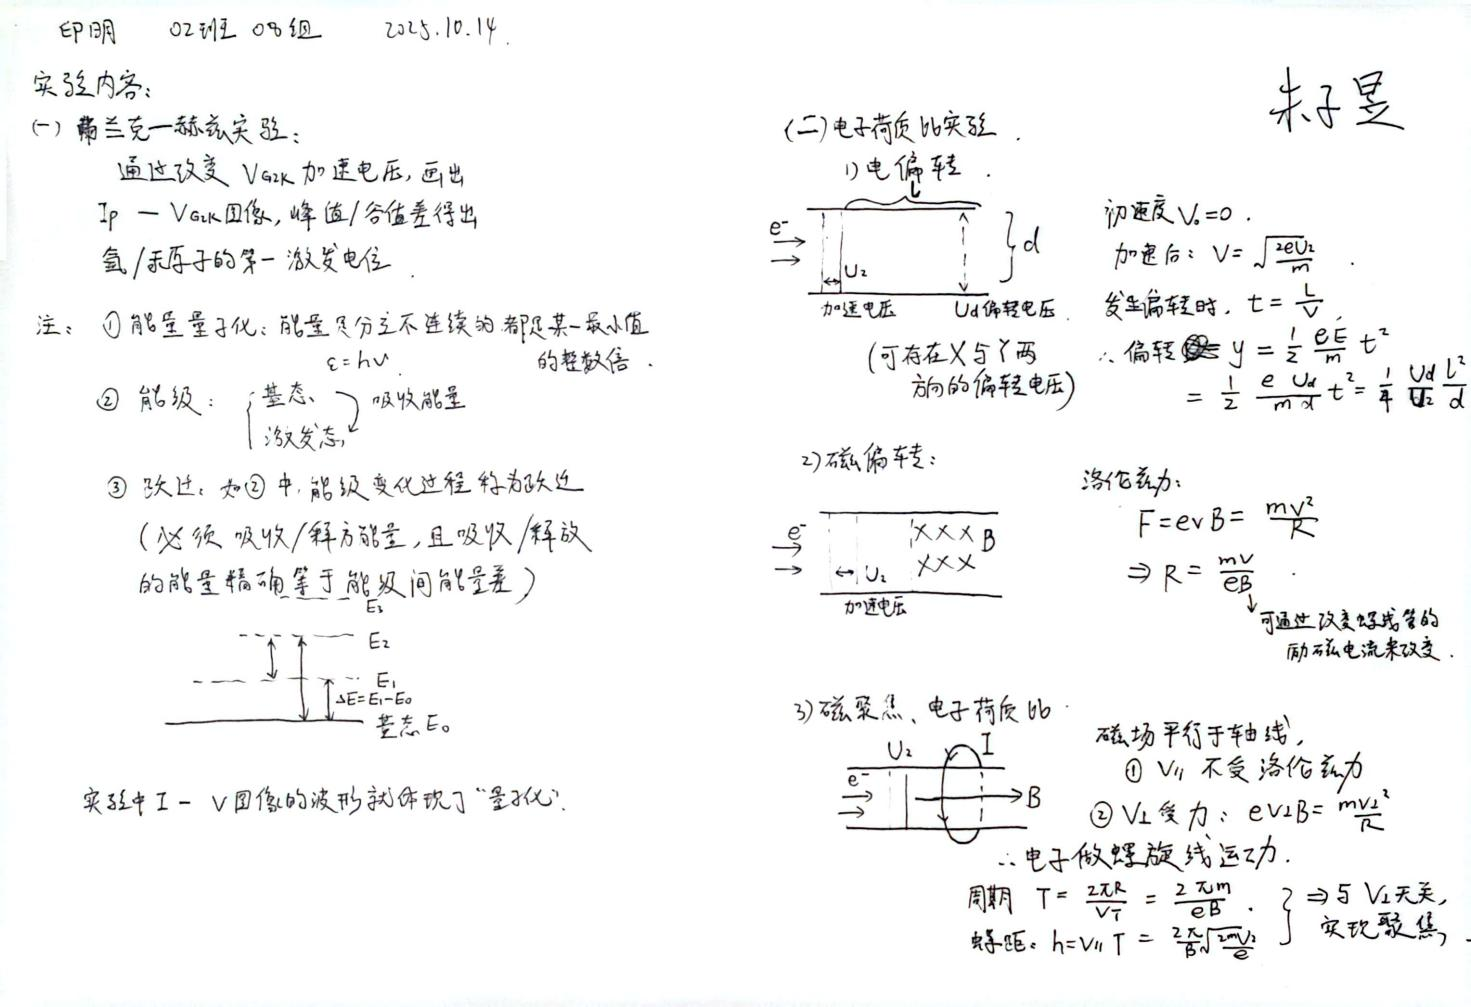 印明 02班 08组 2025.10.14.
实验内容:
(一) 弗兰克一赫兹实验:
通过改变 VG2K 加速电压, 画出
Ip — VG2K图像, 峰值/谷值差得出
氩/汞原子的第一激发电位.
注: ①能量量子化: 能量是分立不连续的.都是某一最小值
的整数倍.
ε=hν.
② 能级: { 基态、 激发态, 吸收能量
③ 跃迁: 如②中, 能级变化过程称为跃迁
(必须 吸收/释放能量, 且吸收/释放
的能量精确等于能级间能量差)
E3
E2
E1
ΔE=E1-E0
基态E0
实验中 I - V图像的波形就体现了"量子化".
朱子昱
(二)电子荷质比实验.
1)电偏转.
L
e⁻
d
U2
加速电压
Ud偏转电压.
(可存在X与Y两
方向的偏转电压)
初速度 V0=0.
加速后: V=√(2eU2/m).
发生偏转时, t = L/V,
∴ 偏转 y = 1/2 eE/m t²
= 1/2 e Ud/m d t² = 1/4 Ud/U2 L²/d
2)磁偏转:
e⁻
××× B
×××
U2
加速电压
洛伦兹力:
F=evB= mv²/R
⇒ R= mv/eB.
↓可通过改变螺线管的
励磁电流来改变.
3)磁聚焦、电子荷质比.
U2
I
e⁻
B
磁场平行于轴线,
① V∥ 不受洛伦兹力
② V⊥受力: eV⊥B= mV⊥²/R
∴电子做螺旋线运动.
周期 T= 2πR/V⊥ = 2πm/eB.
螺距: h=V∥T = 2π/B √(2mU2/e)
} ⇒与V⊥无关,
实现聚焦,